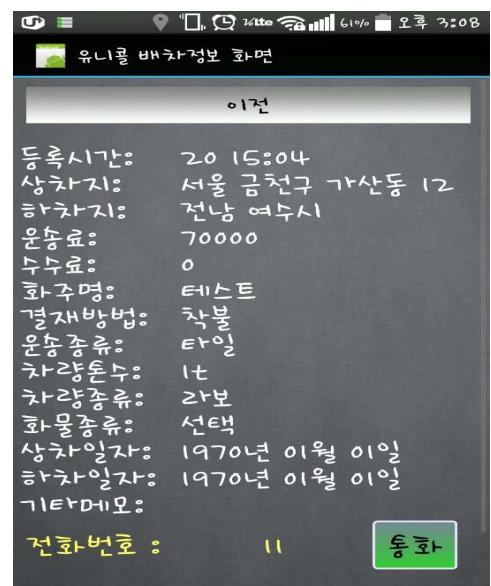 61% 오후 3:08
유니콜 배차정보 화면
이전
등록시간: 20 15:04
상차지: 서울 금천구 가산동 12
하차지: 전남 여수시
운송료: 70000
수수료: 0
화주명: 테스트
결재방법: 착불
운송종류: 타일
차량톤수: 1t
차량종류: 라보
화물종류: 선택
상차일자: 1970년 01월 01일
하차일자: 1970년 01월 01일
기타메모:
전화번호 : 11 통화